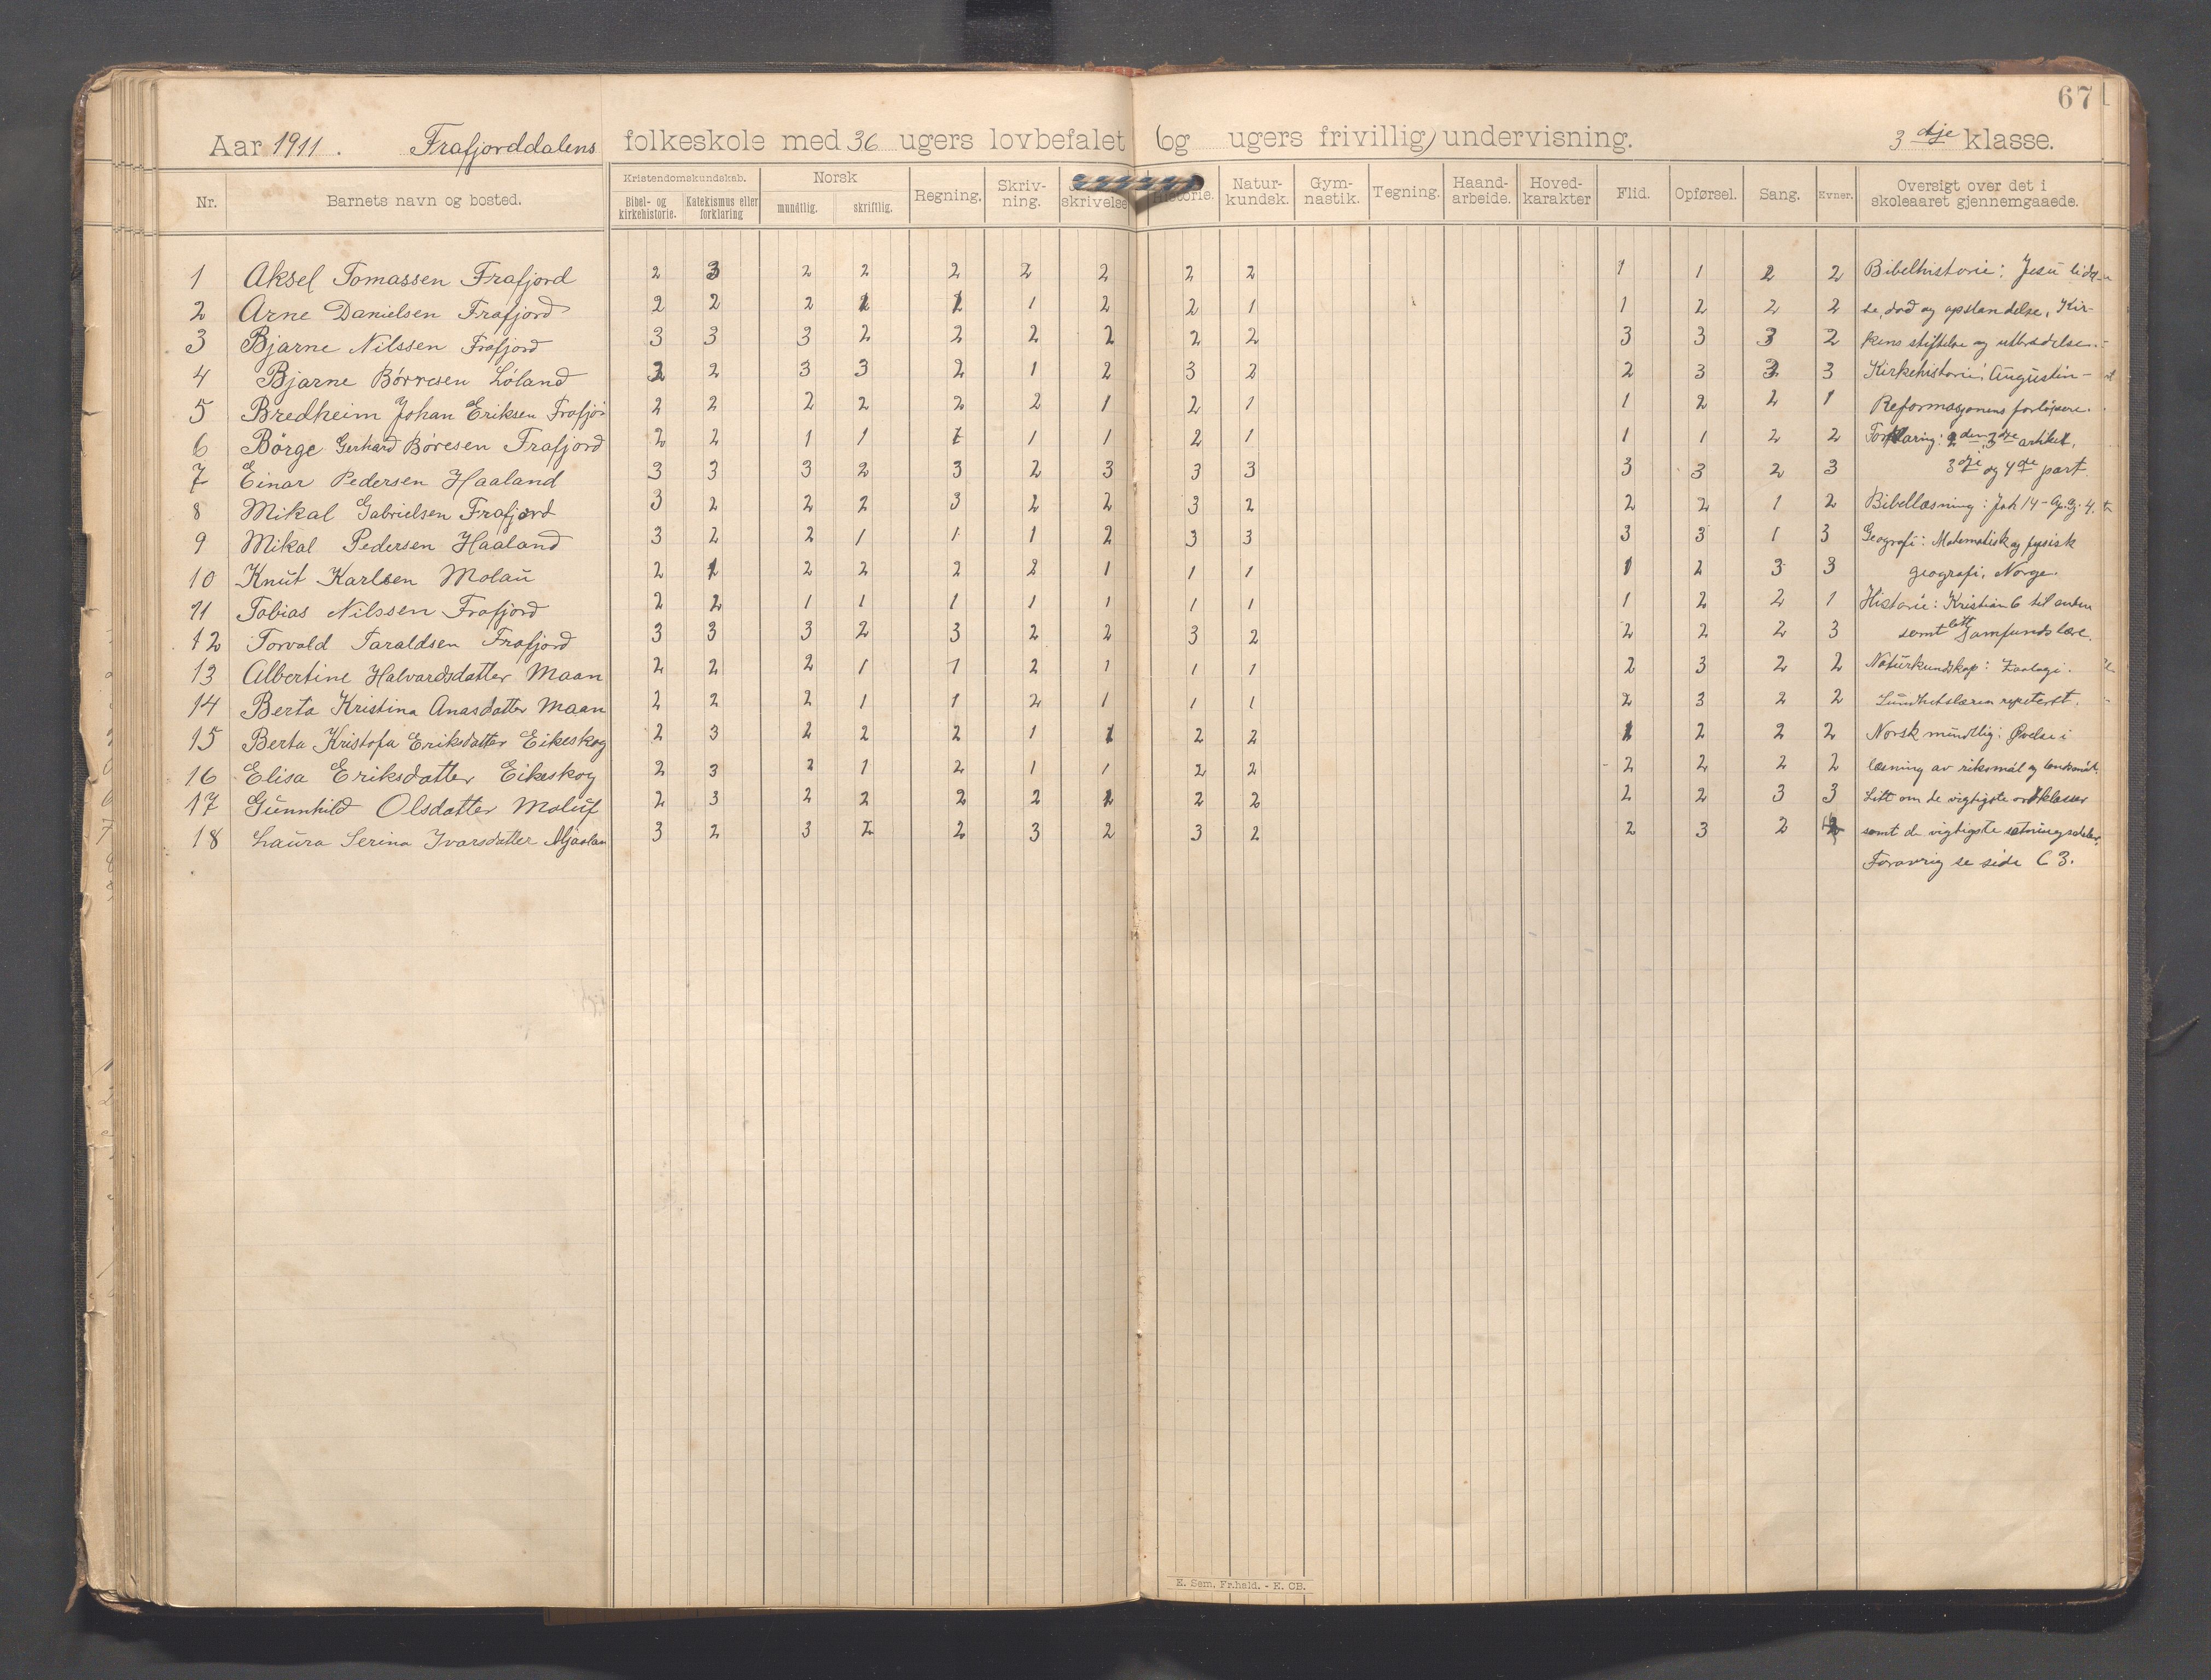 67
Aar 1911. Frafjorddalens folkeskole med 36 ugers lovbefalet (og ugers frivillig) undervisning. 3 dje klasse.
Nr. Barnets navn og bosted. Kristendomskundskab. Bibel- og kirkehistorie. Katekismus eller forklaring Norsk mundtlig. skriftlig. Regning. Skriv-ning. skrivelse Historie. Natur-kundsk. Gym-nastik. Tegning. Haand-arbeide. Hoved-karakter Flid. Opførsel. Sang. Evner. Oversigt over det i skoleaaret gjennemgaaede.
1 Aksel Tomassen Frafjord 2 3 2 2 2 2 2 2 2 1 1 2 2 Bibelhistorie: Jesu
2 Arne Danielsen Frafjord 2 2 2 1 1 2 2 1 1 2 2 2 se, død og opstandelse, Kir-
3 Bjarne Nilssen Frafjord 3 3 3 2 2 2 2 2 2 3 3 3 2 kens stiftelse og utbredelse.
4 Bjarne Børresen Løland 2 3 3 2 1 2 3 2 2 3 3 3 Kirkehistorie: Augustin-
5 Bredheim Johan Eriksen 2 2 2 2 2 2 1 2 1 1 2 2 1 Reformasjonens forløpere.
6 Börge Gerhard Børesen Frafjord 2 2 1 1 1 1 1 2 1 1 1 2 2 Forklaring: 2den 3dje artikel,
7 Einar Pedersen Haaland 3 3 3 2 3 2 3 3 3 3 3 2 3 3dje og 4de part.
8 Mikal Gabrielsen Frafjord 3 2 2 2 3 2 2 3 2 2 2 1 2 Bibellæsning: Joh 14 - Ap.gj. 4.
9 Mikal Pedersen Haaland 3 2 2 1 1 1 2 3 3 3 3 1 3 Geografi: Matematisk og fysisk
10 Knut Karlsen Molau 2 1 2 2 2 2 1 1 1 1 2 3 3 geografi, Norge.
11 Tobias Nilssen Frafjord 2 2 1 1 1 1 1 1 1 1 2 2 1 Historie: Kristian 6 til enden
12 Torvald Taraldsen Frafjord 3 3 3 2 3 2 2 3 2 2 2 2 3 samt litt samfundslære.
13 Albertine Halvardsdatter Maan 2 2 2 1 1 2 1 1 1 2 3 2 2 Naturkundskap: Zoologi.
14 Berta Kristina Anasdatter Maan 2 2 2 1 1 2 1 1 1 2 3 2 2 Sundhetslæren repetert.
15 Berta Kristofa Eriksdatter Eikeskog 2 3 2 2 2 1 1 2 2 1 2 2 2 Norsk mundtlig: Øvelse i
16 Elisa Eriksdatter Eikeskog 2 3 2 1 2 1 1 2 2 2 2 2 2 læsning av riksmål og landsmål.
17 Gunnhild Olsdatter Molúf 2 3 2 2 2 2 2 2 2 2 3 3 Litt om de vigtigste ordklasser
18 Laura Serina Ivarsdatter Mjaalan 3 2 3 2 2 3 2 3 2 2 3 2 samt de vigtigste sætningsdeler.
Forøvrig se side 63.
E. Sem, Fr.hald. - E. OB.